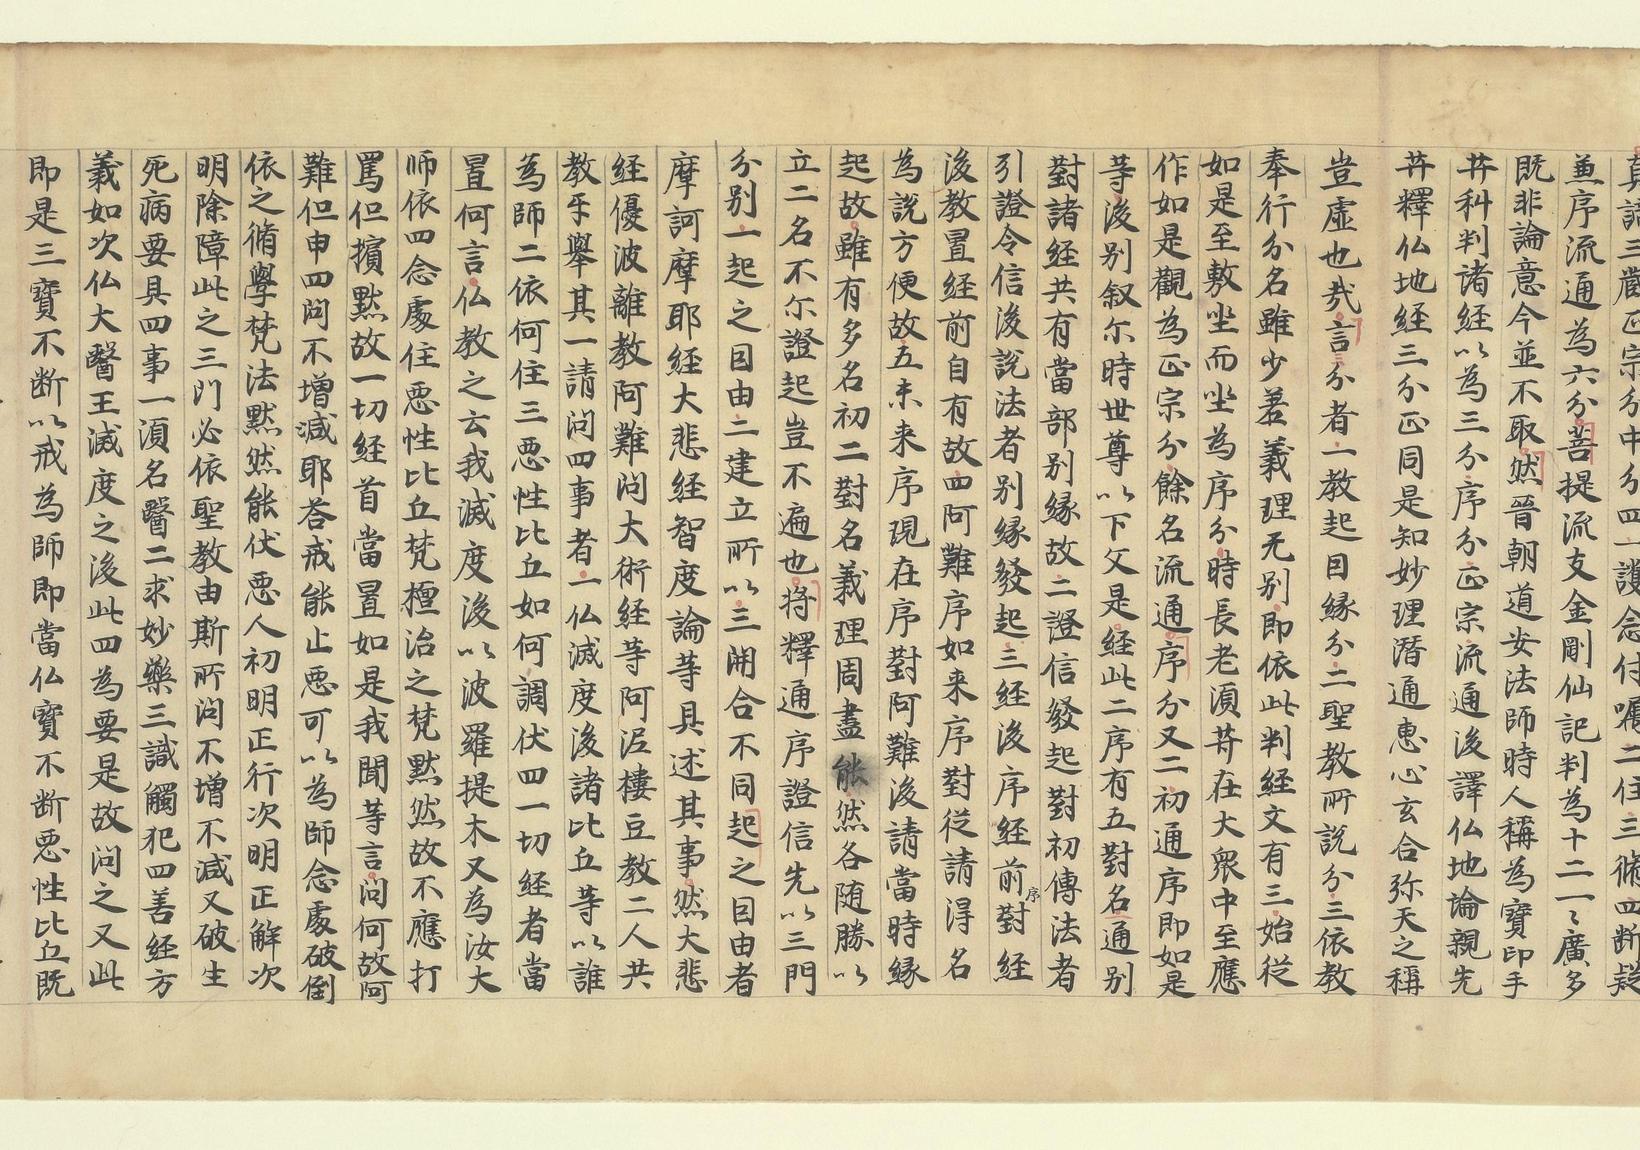 真諦三藏正宗分中分四一護念付囑二住三脩四断疑
兼序流通為六分菩提流支金剛仙記判為十二一〻廣多
既非論意今並不取然晉朝道安法師時人稱為寶印手
菩科判諸経以為三分序分正宗流通後譯仏地論親先
菩釋仏地経三分正同是知妙理潜通惠心玄合弥天之稱
豈虛也㢤言分者一教起因縁分二聖教所說分三依教
奉行分名雖少差義理无别即依此判経文有三始從
如是至敷坐而坐為序分時長老湏菩在大衆中至應
作如是觀為正宗分餘名流通序分又二初通序即如是
等後别叙尒時世尊以下文是経此二序有五對名通别
對諸経共有當部别縁故二證信發起對初傳法者
引證令信後說法者别縁發起三経後序経前序對経
後教置経前自有故四阿難序如来序對從請得名
為說方便故五未来序現在序對阿難後請當時縁
起故雖有多名初二對名義理周盡能然各随勝以
立二名不尒證起豈不遍也将釋通序證信先以三門
分别一起之因由二建立所以三開合不同起之因由者
摩訶摩耶経大悲経智度論等具述其事然大悲
経優波離教阿難問大術経等阿泥樓豆教二人共
教乎舉其一請問四事者一仏滅度後諸比丘等以誰
為師二依何住三惡性比丘如何調伏四一切経者當
置何言仏教之云我滅度後以波羅提木又為汝大
師依四念處住惡性比丘梵檀治之梵黙然故不應打
罵但擯黙故一切経首當置如是我聞等言問何故阿
難但申四問不增減耶荅戒能止惡可以為師念處破倒
依之脩學梵法黙然能伏惡人初明正行次明正解次
明除障此之三門必依聖教由斯所問不增不減又破生
死病要具四事一湏名醫二求妙藥三識觸犯四善経方
義如次仏大醫王滅度之後此四為要是故問之又此
即是三寶不断以戒為師即當仏寶不断惡性比丘既